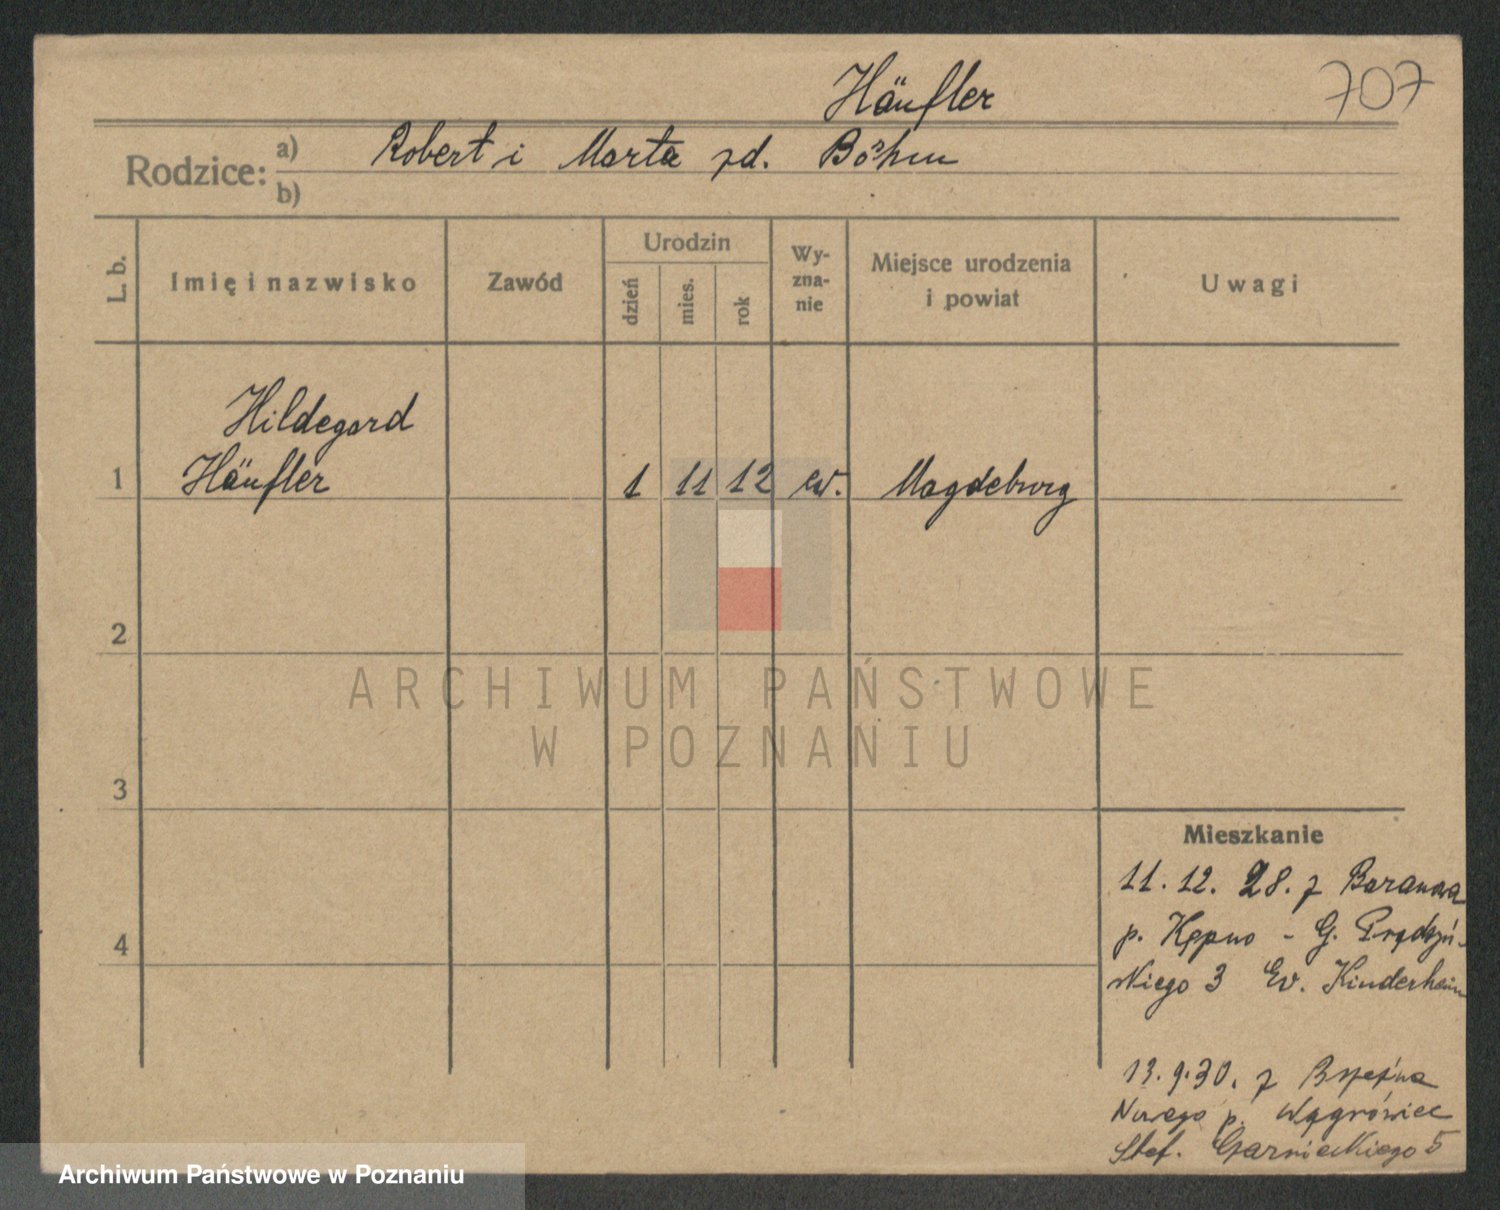 Häufler 707
Rodzice: a) Robert i Marta zd. Böhm
b)
L. b. Imię i nazwisko Zawód Urodzin dzień mies. rok Wy-zna-nie Miejsce urodzenia i powiat Uwagi
Hildegard
1 Häufler 1 11 12 ew. Magdeburg
2
ARCHIWUM PAŃSTWOWE
W POZNANIU
3
Mieszkanie
11. 12. 28. z Baranowa
4 p. Kępno - G. Prądzyń-
skiego 3 Ev. Kinderheim
13. 9. 30. z
p. Wągrówiec
Stef. Czarnieckiego 5
Archiwum Państwowe w Poznaniu